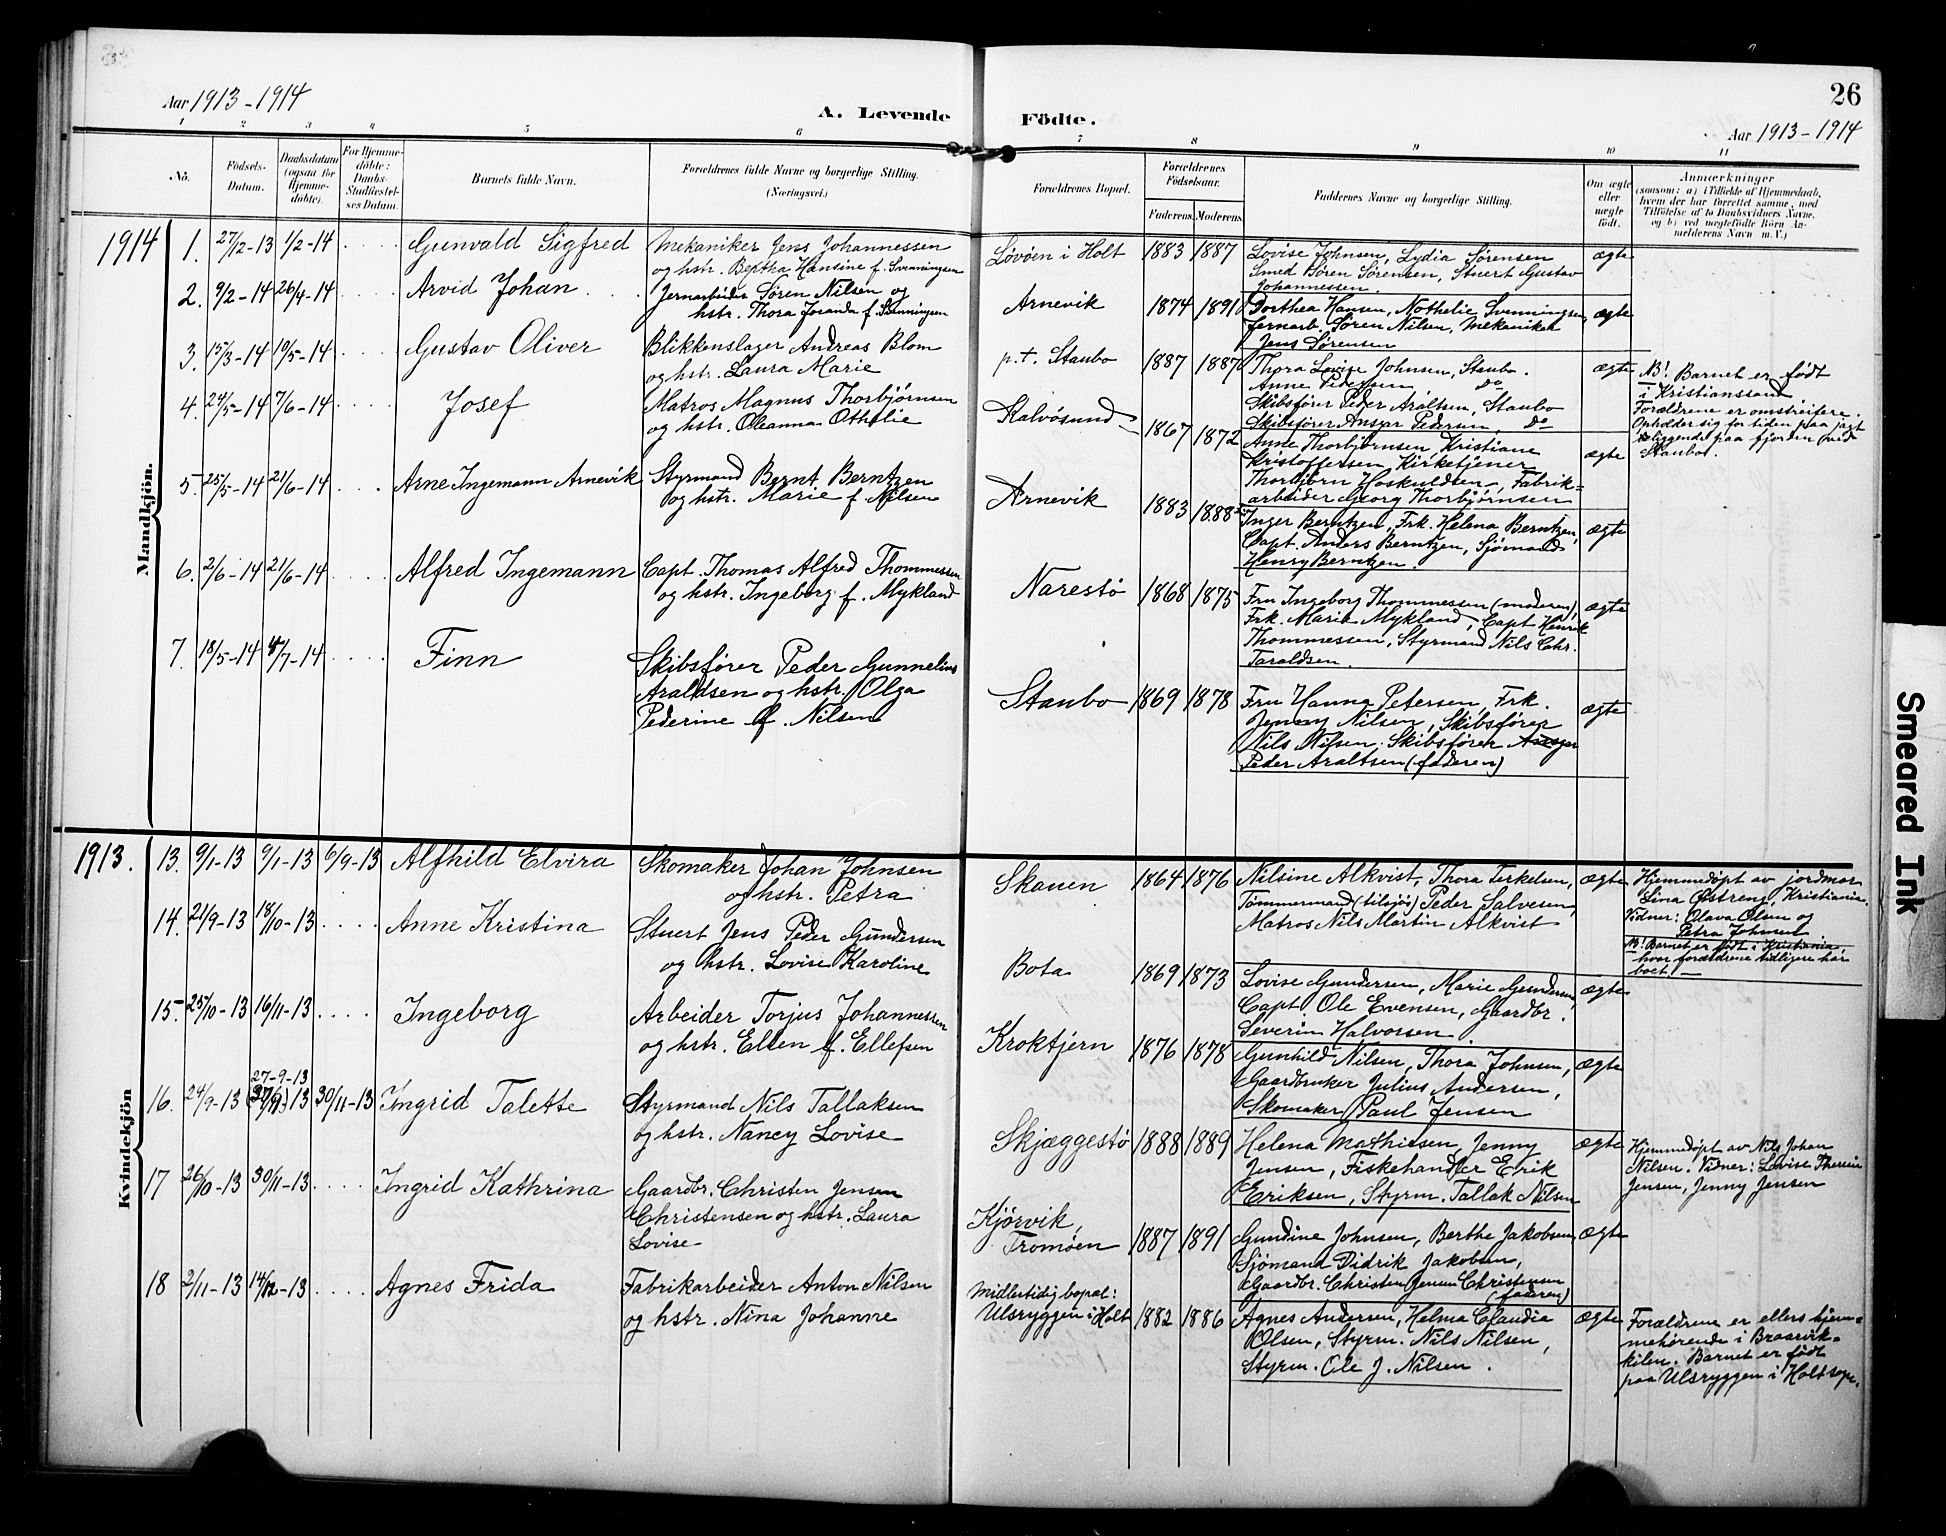 26
Aar 1913-1914
A. Levende Födte.
Aar 1913-1914
1 2 3 4 5 6 7 8 9 10 11
No.
Födsels-
Datum.
Daabsdatum
(ogsaa for
Hjemme-
döbte).
For Hjemme-
döbte:
Daabs-
Stadfæstel-
ses Datum.
Barnets fulde Navn.
Forældrenes fulde Navne og borgerlige Stilling.
(Næringsvei.)
Forældrenes Bopæl.
Forældrenes
Födselsaar.
Faderens. Moderens.
Faddernes Navne og borgerlige Stilling.
Om ægte
eller
uægte
födt.
Anmærkninger
(saasom: a) i Tilfælde af Hjemmedaab,
hvem der har forrettet samme, med
Tilföielse af to Daabsvidners Navne,
og b) ved uægtefödte Börn An-
melderens Navn m. V.)
Mandkjön.
1914 1. 27/12-13 1/2-14 Gunvald Sigfred
Mekaniker Jens Johannessen
og hstr. Bertha Hansine f. Svenningsen
Løvøen i Holt 1883 1887
Lovise Johnsen, Lydia Sørensen
Smed Søren Sørensen, Stuert Gustav
Johannessen.
ægte
2. 9/2-14 26/4-14 Arvid Johan
Jernarbeider Søren Nilsen og
hstr. Thora Josanda f. Svenningsen
Arnevik 1874 1891
Dorthea Hansen, Nothelie Svenningsen,
Jernarb. Søren Nilsen, Mekaniker
Jens Sørensen
ægte
3. 15/3-14 10/5-14 Gustav Oliver
Blikkenslager Andreas Blom
og hstr. Laura Marie
p.t. Staubo 1887 1887
Thora Lovise Johnsen, Staubo.
Anne Pedersen do
Skibsfører Peder Araltsen, Staubo
Skibsfører Ansgar Pedersen, do
ægte
NB! Barnet er født
i Kristianssand
Forældrene er omstreifere.
Opholder sig for tiden paa jagt
liggende paa fjorden ved
Staubo.
4. 24/5-14 7/6-14 Josef
Matros Magnus Thorbjørnsen
og hstr. Oleanna Othelie
Kalvøsund 1867 1872
Anne Thorbjørnsen, Kristiane
Kristoffersen, Kirketjener
Thorbjørn Hoskuldsen, Fabrik=
arbeider Georg Thorbjørnsen
ægte
5. 25/5-14 21/6-14 Arne Ingemann Arnevik
Styrmand Bernt Berntzen
og hstr. Marie f. Nilsen
Arnevik 1883 1888
Inger Berntzen, Frk. Helena Berntzen,
Capt. Anders Berntzen, Sjømand
Henry Berntzen.
ægte
6. 2/6-14 21/6-14 Alfred Ingemann
Capt. Thomas Alfred Thommessen
og hstr. Ingeborg f. Mykland
Narestø 1868 1875
Fru Ingeborg Thommessen (moderen),
Frk. Marie Mykland, Capt Henrik
Thommessen, Styrmand Nils Chr.
Taraldsen.
ægte
7. 18/5-14 /7-14 Finn
Skibsfører Peder Gunnelius
Araldsen og hstr. Olga
Pederine f. Nilsen
Staubo 1869 1878
Fru Hanna Petersen, Frk.
Jenny Nilsen, Skibsfører
Nils Nilsen. Skibsfører Ansgar
Peder Araltsen (faderen)
ægte
Kvindekjön
1913. 13. 9/1-13 9/1-13 6/9-13 Alfhild Elvira
Skomaker Johan Johnsen
og hstr. Petra
Skauen 1864 1876
Nilsine Alkvist, Thora Terkelsen,
Tømmermand (tilsjøs) Peder Salvesen,
Matros Nils Martin Alkvist
ægte
Hjemmedøpt av jordmor
Lina Østreng, Kristiania.
Vidner: Olava Olsen og
Petra Johnsen
NB! Barnet er født i Kristiania,
hvor forældrene tidligere har
boet. —
14. 21/9-13 18/10-13 Anne Kristina
Stuert Jens Peder Gundersen
og hstr. Lovise Karoline
Bota 1869 1873
Lovise Gundersen, Marie Gundersen,
Capt. Ole Evensen, Gaardbr.
Severin Halvorsen.
ægte
15. 25/10-13 16/11-13 Ingeborg
Arbeider Torjus Johannessen
og hstr. Ellen f. Ellefsen
Kroktjern 1876 1878
Gunhild Nilsen, Thora Johnsen,
Gaardbruker Julius Andersen,
Skomaker Paul Jensen
ægte
16. 24/9-13 27-9-13 30/11-13 Ingrid Talette
Styrmand Nils Tallaksen
og hstr. Nancy Lovise
Skjæggestø 1888 1889
Helena Mathiesen, Jenny
Jensen, Fiskehandler Erik
Eriksen, Styrm. Tallak Nilsen
ægte
Hjemmdøpt av Nils Johan
Nilsen. Vidner: Lovise Theresie
Jensen, Jenny Jensen
17 26/10-13 30/11-13 Ingrid Kathrina
Gaardbr. Christen Jensen
Christensen og hstr. Laura
Lovise
Kjørvik,
Tromøen 1887 1891
Gundine Johnsen, Berthe Jakobsen,
Sjømand Didrik Jakobsen,
Gaardbr. Christen Jensen Christensen
(faderen)
ægte
18 2/11-13 14/12-13 Agnes Frida
Fabrikarbeider Anton Nilsen
og hstr. Nina Johanne
Midlertidig bopæl:
Ulsryggen i Holt 1882 1886
Agnes Andersen, Helma Claudia
Olsen, Styrm. Nils Nilsen,
Styrm. Ole J. Nilsen.
ægte
Forældrene er ellers hjem=
mehørende i Braarvik-
kilen. Barnet er født
paa Ulsryggen i Holt sogn.
Smeared Ink